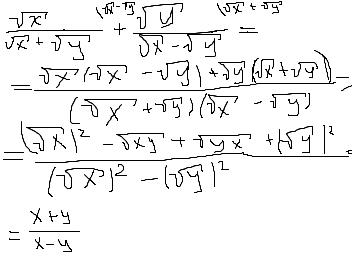 √x/(√x + √y) (√x - √y) + √y/(√x - √y) (√x + √y) =
= (√x (√x - √y) + √y (√x + √y))/((√x + √y)(√x - √y)) =
= ((√x)² - √xy + √yx + (√y)²)/((√x)² - (√y)²) =
= (x+y)/(x-y)